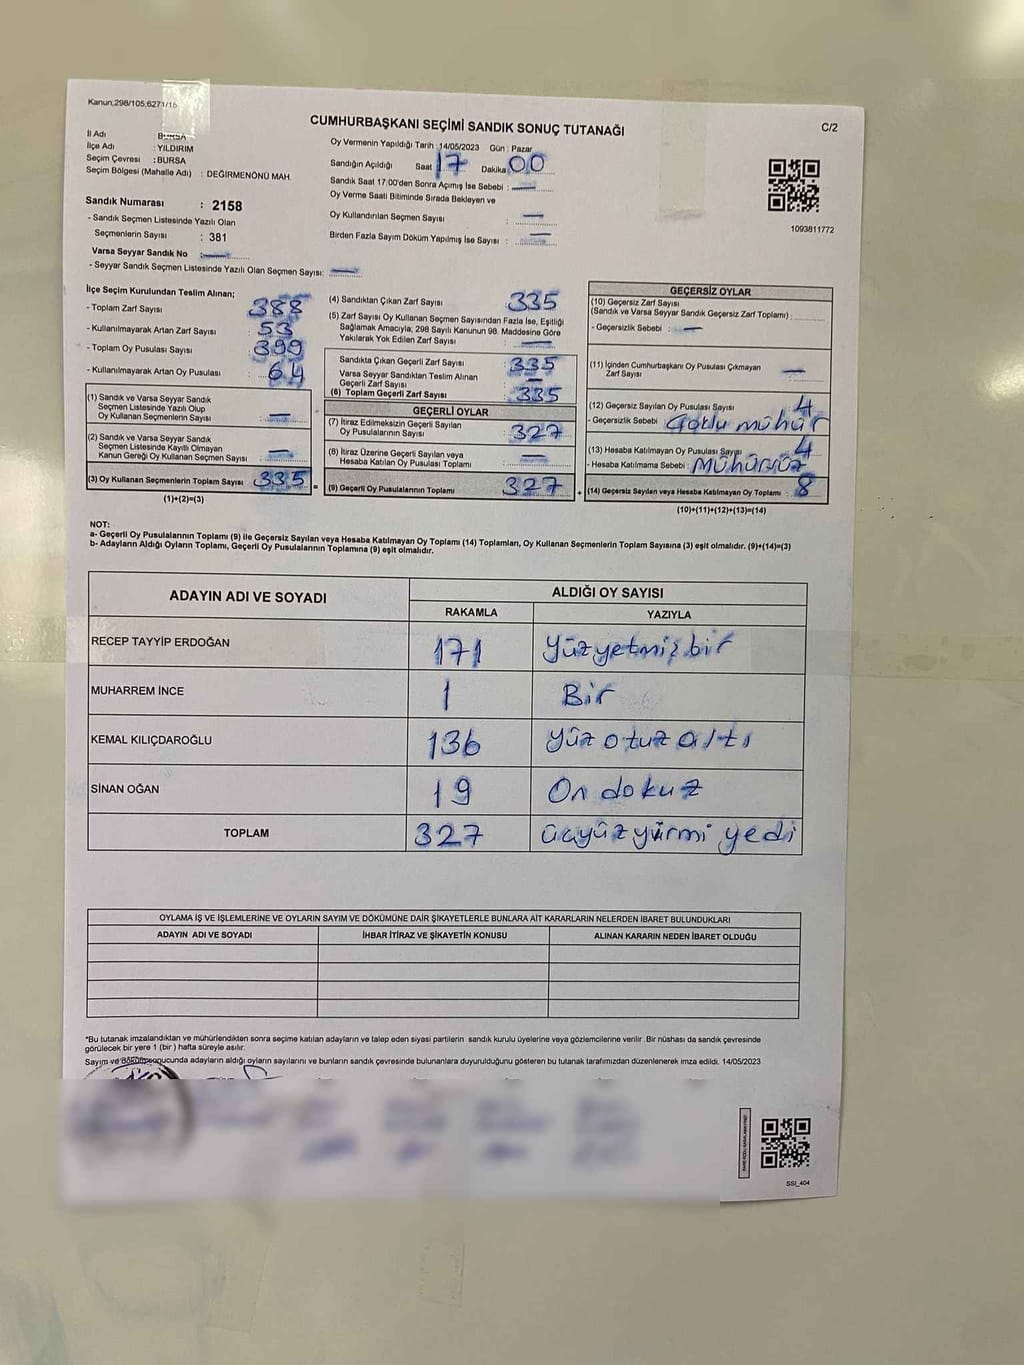 Kanun:298/105,6271/1
CUMHURBAŞKANI SEÇİMİ SANDIK SONUÇ TUTANAĞI
C/2
İl Adı : BURSA
İlçe Adı : YILDIRIM
Seçim Çevresi : BURSA
Seçim Bölgesi (Mahalle Adı) : DEĞİRMENÖNÜ MAH.
Sandık Numarası : 2158
- Sandık Seçmen Listesinde Yazılı Olan
Seçmenlerin Sayısı : 381
Varsa Seyyar Sandık No : —
- Seyyar Sandık Seçmen Listesinde Yazılı Olan Seçmen Sayısı: —
Oy Vermenin Yapıldığı Tarih :14/05/2023 Gün : Pazar
Sandığın Açıldığı Saat 17 Dakika 00
Sandık Saat 17:00'den Sonra Açımış İse Sebebi : —
Oy Verme Saati Bitiminde Sırada Bekleyen ve
Oy Kullandırılan Seçmen Sayısı : —
Birden Fazla Sayım Döküm Yapılmış İse Sayısı : —
1093811772
İlçe Seçim Kurulundan Teslim Alınan;
- Toplam Zarf Sayısı : 388
- Kullanılmayarak Artan Zarf Sayısı : 53
- Toplam Oy Pusulası Sayısı : 399
- Kullanılmayarak Artan Oy Pusulası : 64
(1) Sandık ve Varsa Seyyar Sandık
Seçmen Listesinde Yazılı Olup
Oy Kullanan Seçmenlerin Sayısı : —
(2) Sandık ve Varsa Seyyar Sandık
Seçmen Listesinde Kayıtlı Olmayan
Kanun Gereği Oy Kullanan Seçmen Sayısı : —
(3) Oy Kullanan Seçmenlerin Toplam Sayısı : 335 =
(1)+(2)=(3)
(4) Sandıktan Çıkan Zarf Sayısı : 335
(5) Zarf Sayısı Oy Kullanan Seçmen Sayısından Fazla İse, Eşitliği
Sağlamak Amacıyla, 298 Sayılı Kanunun 98. Maddesine Göre
Yakılarak Yok Edilen Zarf Sayısı : —
Sandıkta Çıkan Geçerli Zarf Sayısı : 335
Varsa Seyyar Sandıktan Teslim Alınan
Geçerli Zarf Sayısı : —
(6) Toplam Geçerli Zarf Sayısı : 335
GEÇERLİ OYLAR
(7) İtiraz Edilmeksizin Geçerli Sayılan
Oy Pusulalarının Sayısı : 327
(8) İtiraz Üzerine Geçerli Sayılan veya
Hesaba Katılan Oy Pusulası Toplamı : —
(9) Geçerli Oy Pusulalarının Toplamı : 327 +
GEÇERSİZ OYLAR
(10) Geçersiz Zarf Sayısı
(Sandık ve Varsa Seyyar Sandık Geçersiz Zarf Toplamı) :
- Geçersizlik Sebebi : —
(11) İçinden Cumhurbaşkanı Oy Pusulası Çıkmayan
Zarf Sayısı : —
(12) Geçersiz Sayılan Oy Pusulası Sayısı : 4
- Geçersizlik Sebebi : Çoklu mühür
(13) Hesaba Katılmayan Oy Pusulası Sayısı : 4
- Hesaba Katılmama Sebebi : Mühürsüz
(14) Geçersiz Sayılan veya Hesaba Katılmayan Oy Toplamı : 8
(10)+(11)+(12)+(13)=(14)
NOT:
a- Geçerli Oy Pusulalarının Toplamı (9) ile Geçersiz Sayılan veya Hesaba Katılmayan Oy Toplamı (14) Toplamları, Oy Kullanan Seçmenlerin Toplam Sayısına (3) eşit olmalıdır. (9)+(14)=(3)
b- Adayların Aldığı Oyların Toplamı, Geçerli Oy Pusulalarının Toplamına (9) eşit olmalıdır.
ADAYIN ADI VE SOYADI ALDIĞI OY SAYISI
RAKAMLA YAZIYLA
RECEP TAYYİP ERDOĞAN 171 Yüzyetmişbir
MUHARREM İNCE 1 Bir
KEMAL KILIÇDAROĞLU 136 Yüz otuz altı
SİNAN OĞAN 19 On dokuz
TOPLAM 327 üçyüz yirmi yedi
OYLAMA İŞ VE İŞLEMLERİNE VE OYLARIN SAYIM VE DÖKÜMÜNE DAİR ŞİKAYETLERLE BUNLARA AİT KARARLARIN NELERDEN İBARET BULUNDUKLARI
ADAYIN ADI VE SOYADI İHBAR İTİRAZ VE ŞİKAYETİN KONUSU ALINAN KARARIN NEDEN İBARET OLDUĞU
*Bu tutanak imzalandıktan ve mühürlendikten sonra seçime katılan adayların ve talep eden siyasi partilerin sandık kurulu üyelerine veya gözlemcilerine verilir. Bir nüshası da sandık çevresinde
görülecek bir yere 1 (bir ) hafta süreyle asılır.
Sayım ve döküm sonucunda adayların aldığı oyların sayılarını ve bunların sandık çevresinde bulunanlara duyurulduğunu gösteren bu tutanak tarafımızdan düzenlenerek imza edildi. 14/05/2023
SSI_404